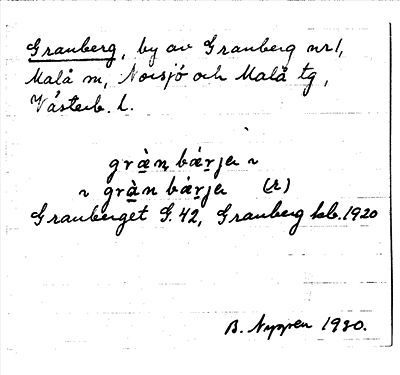 Granberg, by av Granberg nr 1,
Malå sn, Norsjö och Malå tg,
Västerb. l.
gràn̥bár̥jer ~
~ gràn bár̥jer (r)
Granberget G. 42, Granberg kb. 1920
B. Nyppen 1980.